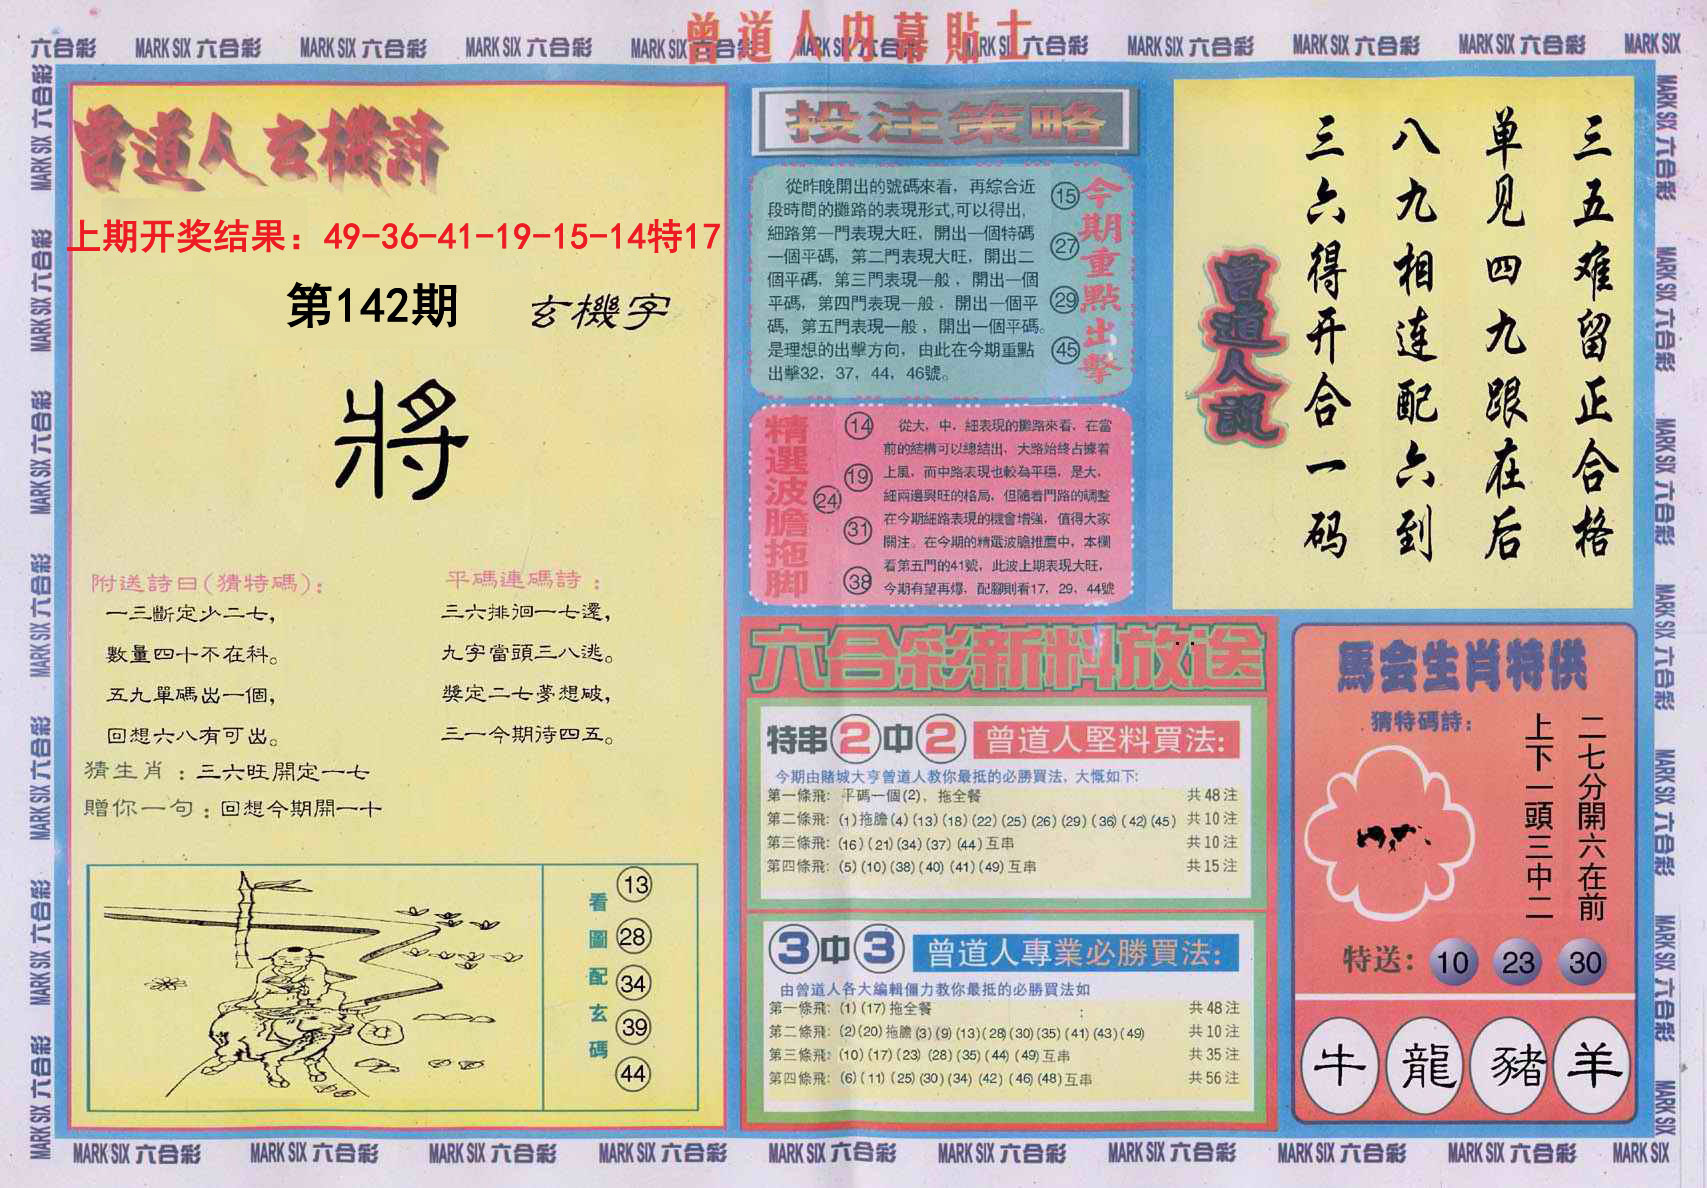 曾道人内幕貼士
六合彩 MARK SIX 六合彩 MARK SIX 六合彩 MARK SIX 六合彩 MARK SIX 六合彩 MARK SIX 六合彩 MARK SIX 六合彩 MARK SIX 六合彩 MARK SIX 六合彩 MARK SIX 六合彩 MARK SIX
曾道人玄機詩
上期开奖结果：49-36-41-19-15-14特17
第142期
玄機字
將
附送詩曰(猜特碼)：
一三斷定少二七，
數量四十不在科。
五九單碼出一個，
回想六八有可出。
平碼連碼詩：
三六排徊一七還，
九字當頭三八逃。
獎定二七夢想破，
三一今期待四五。
猜生肖：三六旺開定一七
贈你一句：回想今期開一十
看圖配玄碼
13
28
34
39
44
投注策略
從昨晚開出的號碼來看，再綜合近
段時間的攤路的表現形式,可以得出,
細路第一門表現大旺，開出一個特碼
一個平碼，第二門表現大旺，開出二
個平碼，第三門表現一般，開出一個
平碼，第四門表現一般．開出一個平
碼，第五門表現一般，開出一個平碼。
是理想的出擊方向，由此在今期重點
出擊32，37，44，46號。
15
27
29
45
今期重點出擊
精選波膽拖脚
14
19
24
31
38
從大，中，細表現的攤路來看，在當
前的結構可以總結出，大路始終占據着
上風，而中路表現也較為平穩，是大，
細兩邊興旺的格局，但隨着門路的調整
在今期細路表現的機會增強，值得大家
關注。在今期的精選波膽推薦中，本欄
看第五門的41號，此波上期表現大旺，
今期有望再爆，配腳則看17，29，44號
六合彩新料放送
特串2中2 曾道人堅料買法:
今期由賭城大亨曾道人教你最抵的必勝買法，大慨如下:
第一條飛: 平碼一個(2)，拖全餐 共48注
第二條飛: (1)拖膽(4)(13)(18)(22)(25)(26)(29)(36)(42)(45) 共10注
第三條飛: (16)(21)(34)(37)(44)互串 共10注
第四條飛: (5)(10)(38)(40)(41)(49)互串 共15注
3中3 曾道人專業必勝買法:
由曾道人各大編輯僵力教你最抵的必勝買法如
第一條飛: (1)(17)拖全餐 共48注
第二條飛: (2)(20)拖膽(3)(9)(13)(28)(30)(35)(41)(43)(49) 共10注
第三條飛: (10)(17)(23)(28)(35)(44)(49)互串 共35注
第四條飛: (6)(11)(25)(30)(34)(42)(46)(48)互串 共56注
三五难留正合格
单见四九跟在后
八九相连配六到
三六得开合一码
曾道人說
馬会生肖特供
猜特碼詩：
二七分開六在前
上下一頭三中二
特送： 10 23 30
牛 龍 豬 羊
MARK SIX 六合彩 MARK SIX 六合彩 MARK SIX 六合彩 MARK SIX 六合彩 MARK SIX 六合彩 MARK SIX 六合彩 MARK SIX 六合彩 MARK SIX 六合彩 MARK SIX 六合彩 MARK SIX